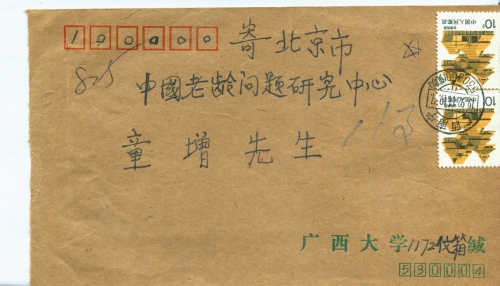 100000
寄北京市
825
中國老龄问题研究中心
童增先生
广西大学1172信箱缄
530004
10分
中国人民邮政
10分
中国人民邮政